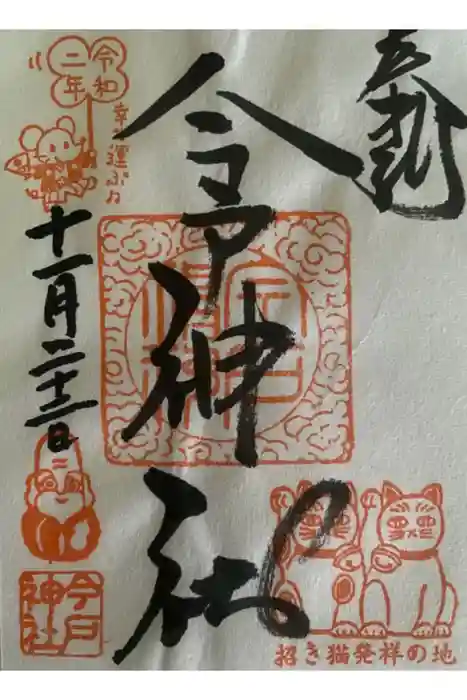 奉拝
今戸神社
令和
二年
幸運ぶ
十一月二十三日
今戸
神社
招き猫発祥の地